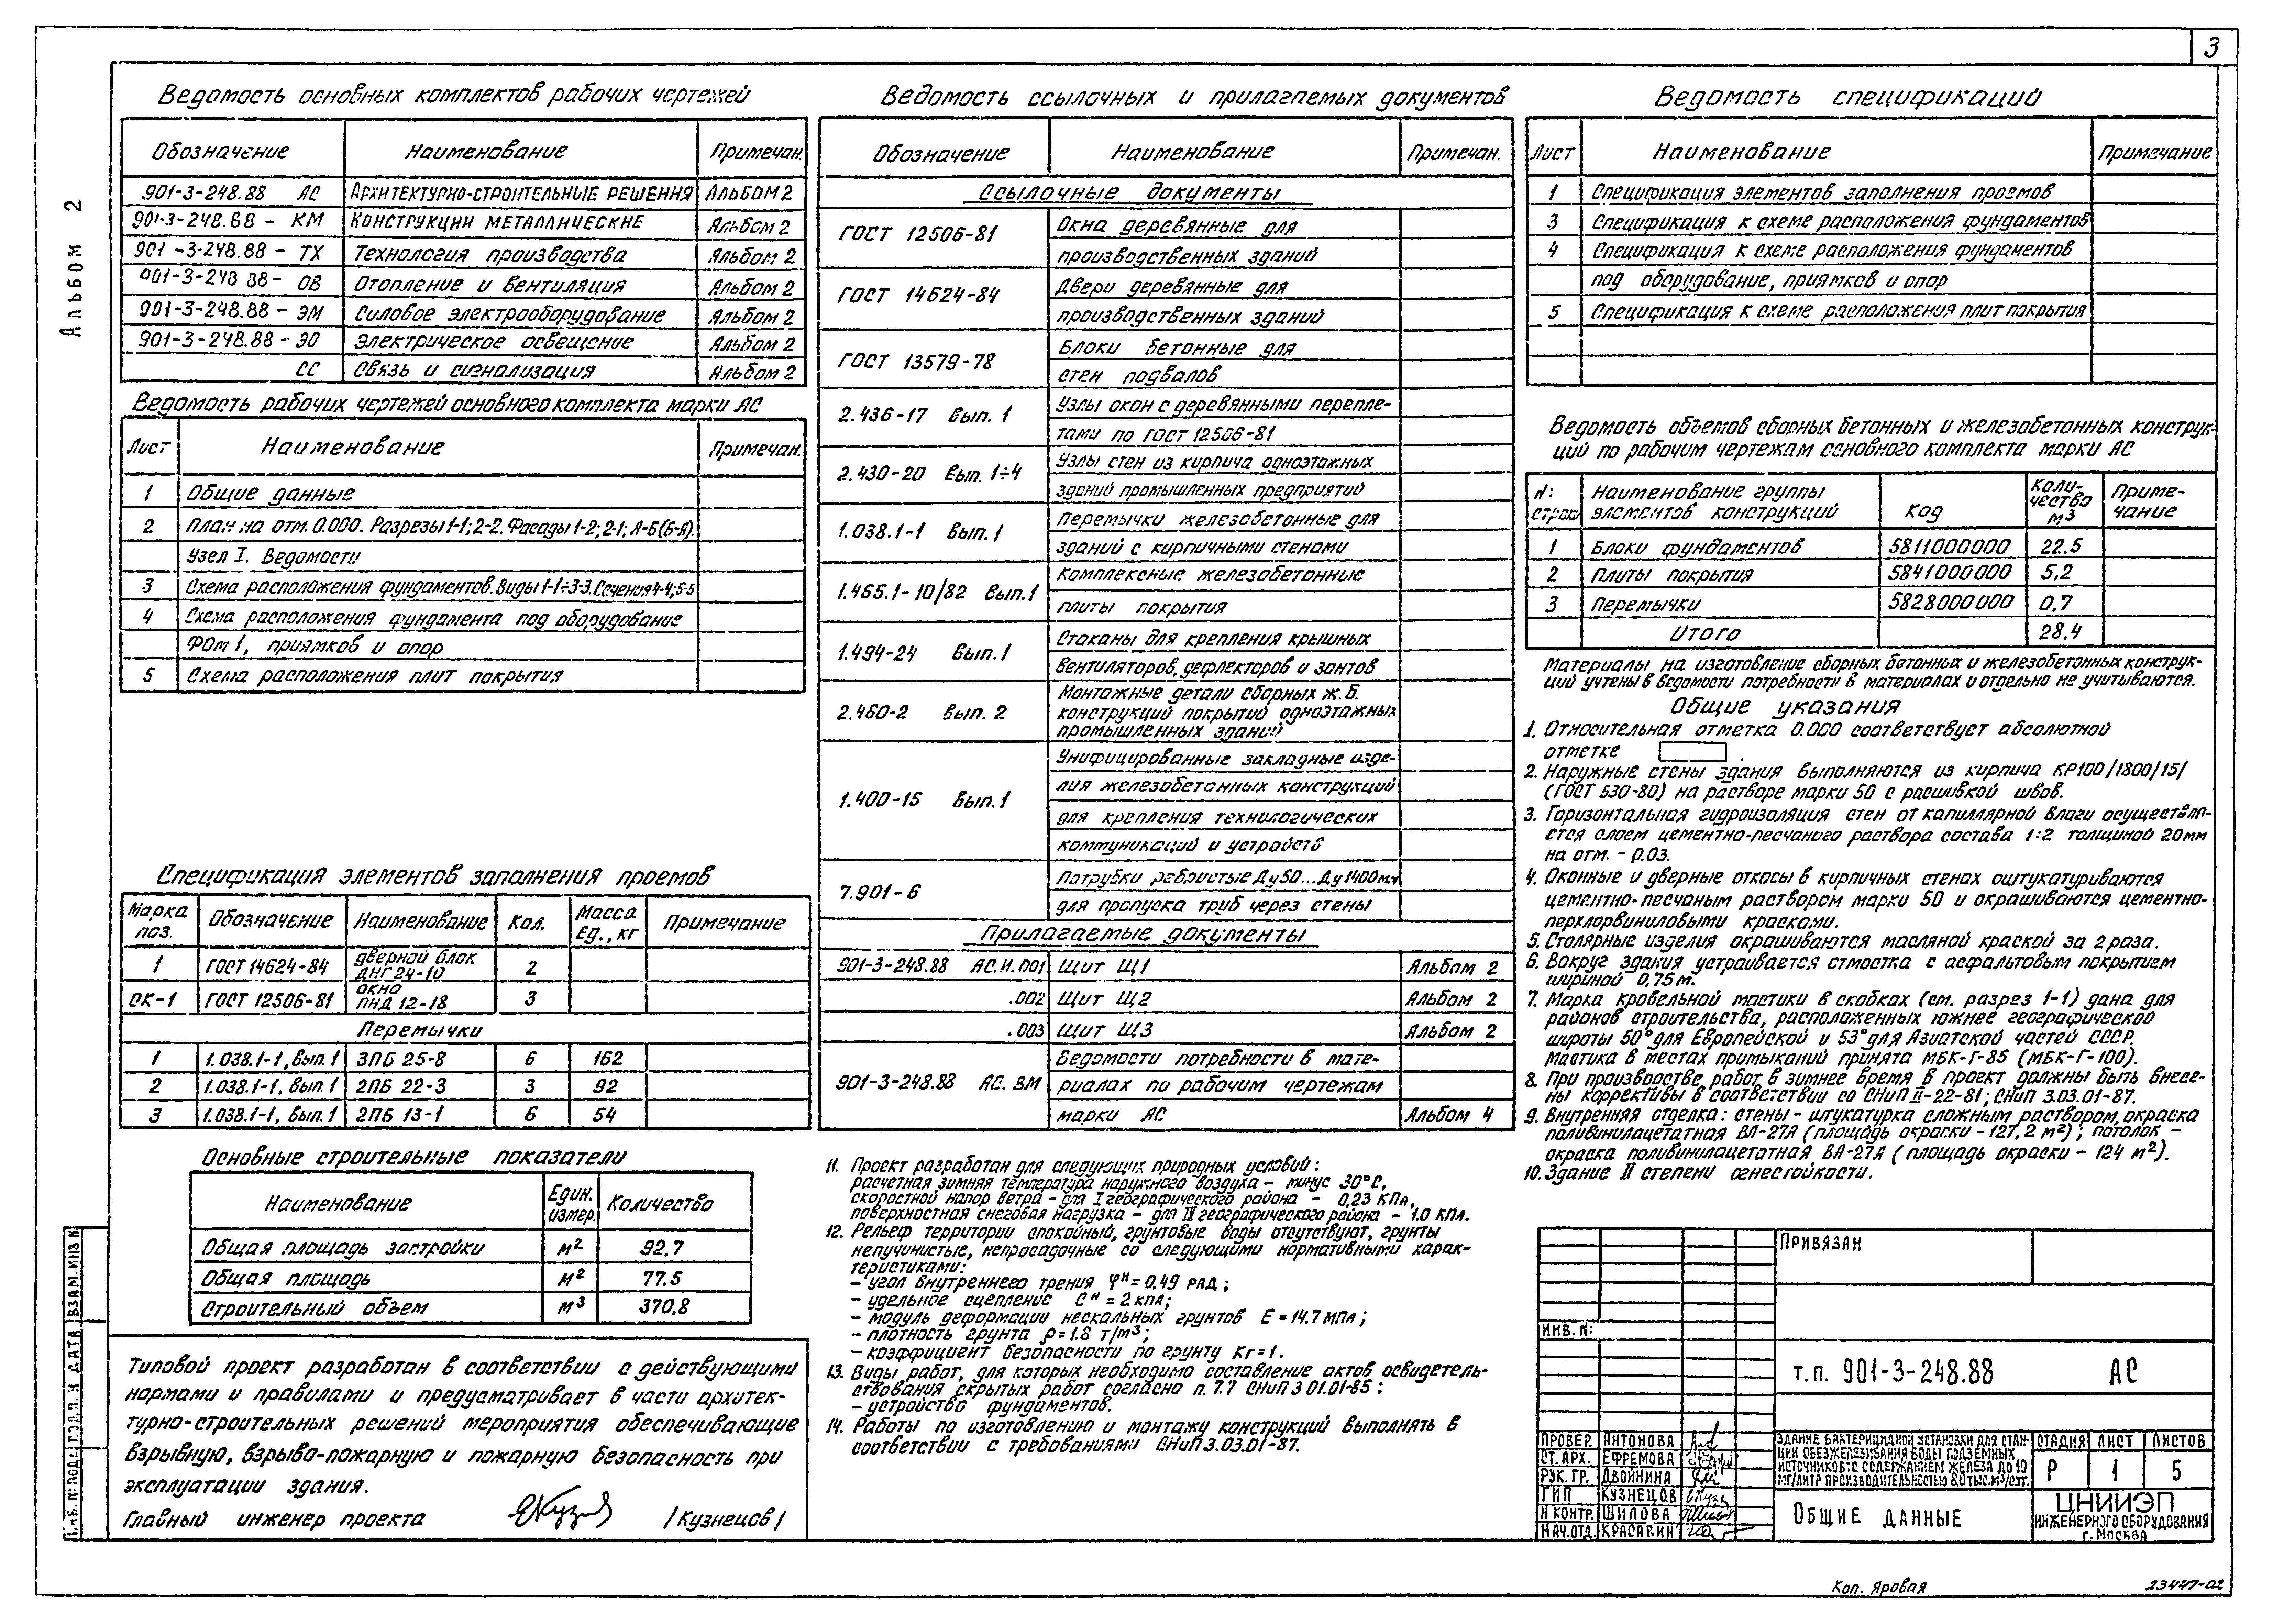 3
Альбом 2
Ведомость основных комплектов рабочих чертежей
Обозначение Наименование Примечан.
901-3-248.88 АС Архитектурно-строительные решения Альбом 2
901-3-248.88 - КМ Конструкции металлические Альбом 2
901-3-248.88 - ТХ Технология производства Альбом 2
901-3-248 88 - ОВ Отопление и вентиляция Альбом 2
901-3-248.88 - ЭМ Силовое электрооборудование Альбом 2
901-3-248.88 - ЭО Электрическое освещение Альбом 2
СС Связь и сигнализация Альбом 2
Ведомость рабочих чертежей основного комплекта марки АС
Лист Наименование Примечан.
1 Общие данные
2 План на отм. 0.000. Разрезы 1-1; 2-2. Фасады 1-2; 2-1; А-Б(Б-А).
Узел I. Ведомости
3 Схема расположения фундаментов. Виды 1-1÷3-3. Сечения 4-4; 5-5
4 Схема расположения фундамента под оборудование
ФОм 1, приямков и опор
5 Схема расположения плит покрытия
Спецификация элементов заполнения проемов
Марка поз. Обозначение Наименование Кол. Масса ед., кг Примечание
1 ГОСТ 14624-84 дверной блок ДНГ 24-10 2
ОК-1 ГОСТ 12506-81 окно ПНД 12-18 3
Перемычки
1 1.038.1-1, Вып 1 3ПБ 25-8 6 162
2 1.038.1-1, Вып. 1 2ПБ 22-3 3 92
3 1.038.1-1, Вып. 1 2ПБ 13-1 6 54
Основные строительные показатели
Наименование Един. измер. Количество
Общая площадь застройки м² 92.7
Общая площадь м² 77.5
Строительный объем м³ 370.8
Типовой проект разработан в соответствии с действующими
нормами и правилами и предусматривает в части архитек-
турно-строительных решений мероприятия обеспечивающие
взрывную, взрыво-пожарную и пожарную безопасность при
эксплуатации здания.
Главный инженер проекта /Кузнецов/
Ведомость ссылочных и прилагаемых документов
Обозначение Наименование Примечан.
Ссылочные документы
ГОСТ 12506-81 Окна деревянные для
производственных зданий
ГОСТ 14624-84 Двери деревянные для
производственных зданий
ГОСТ 13579-78 Блоки бетонные для
стен подвалов
2.436-17 Вып. 1 Узлы окон с деревянными перепле-
тами по ГОСТ 12506-81
2.430-20 Вып. 1÷4 Узлы стен из кирпича одноэтажных
зданий промышленных предприятий
1.038.1-1 Вып. 1 Перемычки железобетонные для
зданий с кирпичными стенами
1.465.1-10/82 Вып.1 Комплексные железобетонные
плиты покрытия
1.494-24 Вып. 1 Стаканы для крепления крышных
вентиляторов, дефлекторов и зонтов
2.460-2 Вып. 2 Монтажные детали сборных ж.б.
конструкций покрытий одноэтажных
промышленных зданий
1.400-15 Вып. 1 Унифицированные закладные изде-
лия железобетонных конструкций
для крепления технологических
коммуникаций и устройств
7.901-6 Патрубки ребристые Ду50...Ду1400мм
для пропуска труб через стены
Прилагаемые документы
901-3-248.88 АС.И.001 Щит Щ1 Альбом 2
.002 Щит Щ2 Альбом 2
.003 Щит Щ3 Альбом 2
901-3-248.88 АС. ВМ Ведомости потребности в мате-
риалах по рабочим чертежам
марки АС Альбом 4
11. Проект разработан для следующих природных условий:
расчетная зимняя температура наружного воздуха - минус 30°С,
скоростной напор ветра - для I географического района - 0,23 КПа,
поверхностная снеговая нагрузка - для III географического района - 1.0 КПа.
12. Рельеф территории спокойный, грунтовые воды отсутствуют, грунты
непучинистые, непросадочные со следующими нормативными харак-
теристиками:
- угол внутреннего трения φн = 0.49 рад;
- удельное сцепление Сн = 2 кПа;
- модуль деформации нескальных грунтов Е = 14.7 МПа;
- плотность грунта ρ = 1.8 т/м³;
- коэффициент безопасности по грунту Кг = 1.
13. Виды работ, для которых необходимо составление актов освидетель-
ствования скрытых работ согласно п. 7.7 СНиП 3 01.01-85:
- устройство фундаментов.
14. Работы по изготовлению и монтажу конструкций выполнять в
соответствии с требованиями СНиП 3.03.01-87.
Ведомость спецификаций
Лист Наименование Примечание
1 Спецификация элементов заполнения проемов
3 Спецификация к схеме расположения фундаментов
4 Спецификация к схеме расположения фундаментов
под оборудование, приямков и опор
5 Спецификация к схеме расположения плит покрытия
Ведомость объемов сборных бетонных и железобетонных конструк-
ций по рабочим чертежам основного комплекта марки АС
N: строк Наименование группы элементов конструкций Код Коли-чество м³ Приме-чание
1 Блоки фундаментов 5811000000 22.5
2 Плиты покрытия 5841000000 5.2
3 Перемычки 5828000000 0.7
Итого 28.4
Материалы на изготовление сборных бетонных и железобетонных конструк-
ций учтены в ведомости потребности в материалах и отдельно не учитываются.
Общие указания
1. Относительная отметка 0.000 соответствует абсолютной
отметке .
2. Наружные стены здания выполняются из кирпича КР100/1800/15/
(ГОСТ 530-80) на растворе марки 50 с расшивкой швов.
3. Горизонтальная гидроизоляция стен от капиллярной влаги осуществля-
ется слоем цементно-песчаного раствора состава 1:2 толщиной 20мм
на отм. - 0.03.
4. Оконные и дверные откосы в кирпичных стенах оштукатуриваются
цементно-песчаным раствором марки 50 и окрашиваются цементно-
перхлорвиниловыми красками.
5. Столярные изделия окрашиваются масляной краской за 2 раза.
6. Вокруг здания устраивается отмостка с асфальтовым покрытием
шириной 0,75 м.
7. Марка кровельной мастики в скобках (см. разрез 1-1) дана для
районов строительства, расположенных южнее географической
широты 50° для Европейской и 53° для Азиатской частей СССР.
Мастика в местах примыканий принята МБК-Г-85 (МБК-Г-100).
8. При производстве работ в зимнее время в проект должны быть внесе-
ны коррективы в соответствии со СНиП II-22-81; СНиП 3.03.01-87.
9. Внутренняя отделка: стены - штукатурка сложным раствором, окраска
поливинилацетатная ВЛ-27А (площадь окраски - 127,2 м²); потолок -
окраска поливинилацетатная ВА-27А (площадь окраски - 124 м²).
10. Здание II степени огнестойкости.
Привязан
Инв. N:
т.п. 901-3-248.88 АС
Провер. Антонова
Ст. арх. Ефремова
Рук. гр. Двойнина
ГИП Кузнецов
Н контр. Шилова
Нач. отд. Красавин
Здание бактерицидной установки для стан-
ции обезжелезивания воды подземных
источников с содержанием железа до 10
мг/литр производительностью 8.0 тыс. м3/сут.
Стадия Лист Листов
Р 1 5
Общие данные
ЦНИИЭП
инженерного оборудования
г. Москва
Инв. N: подл. Подп. и дата Взам. инв N
Коп. Яровая
23447-02